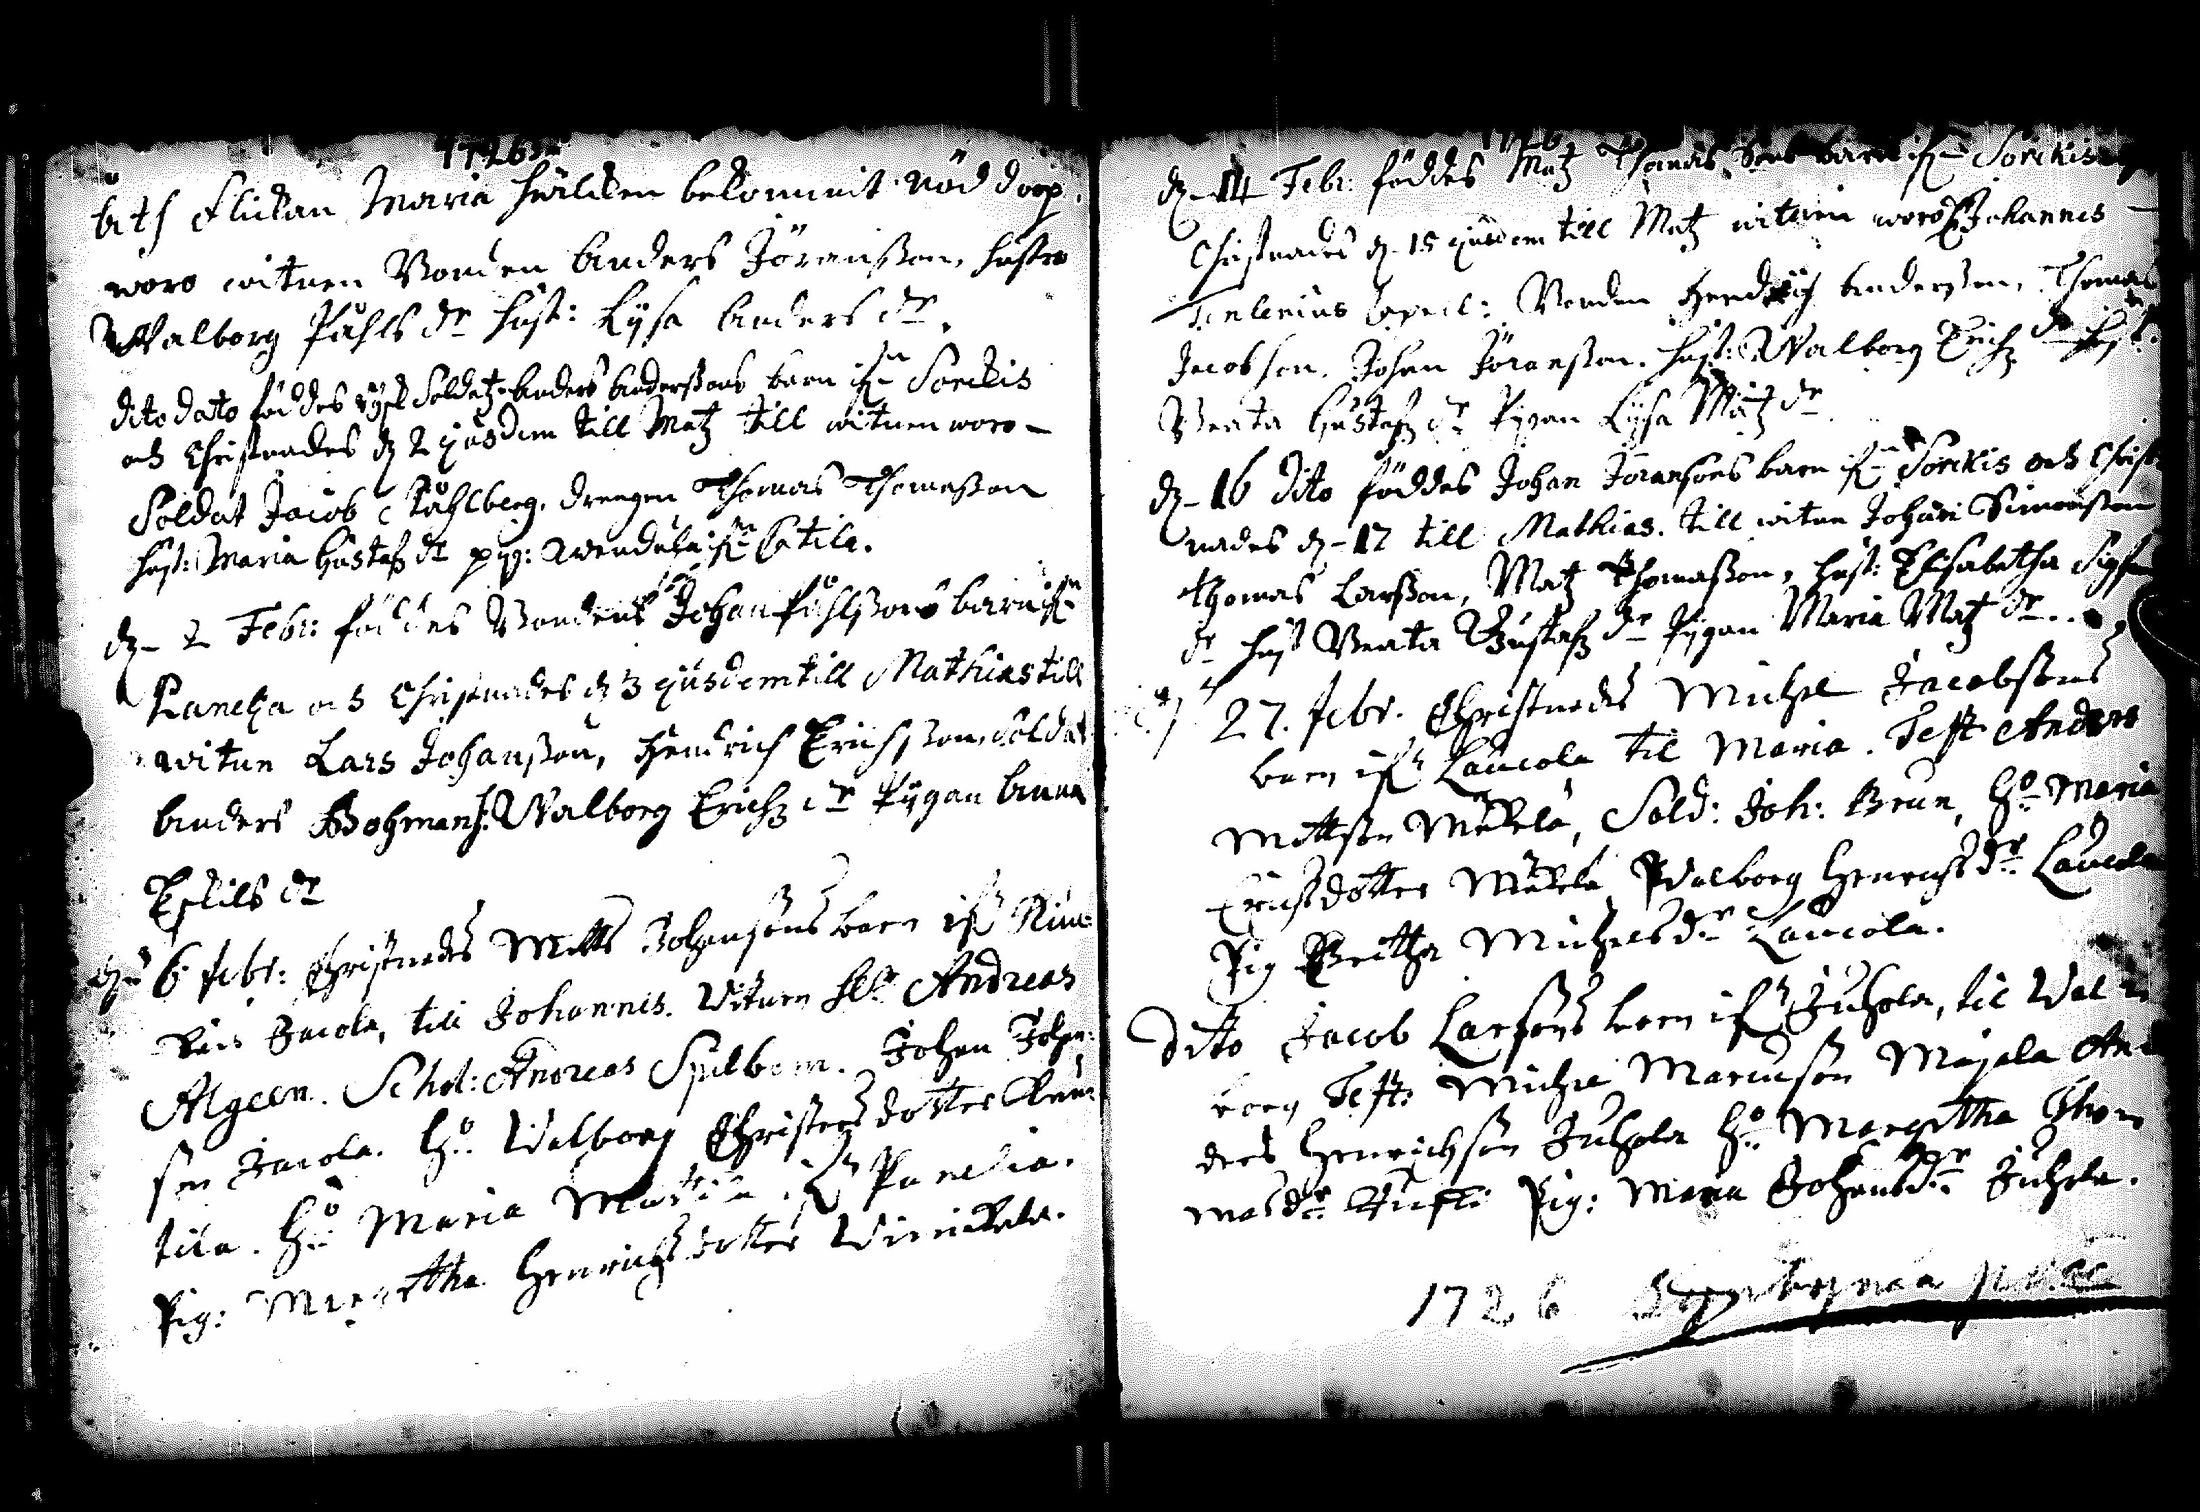 1726
bets flickan Maria hwilcken bekommit nöd dop.
woro witnen Bonden Anders Jöransson, hustro
Walborg Påhls dr hust: Lysa Anders dr.
dito dato föddes Soldatz Anders Anderssons barn ifrn Sorckis
och Christnades d 2 ejusdem till Matz till witnen woro
Soldat Jacob Ståhlberg, drengen Thomas Thomasson
hust: Maria Gustafz dr pig: ifrn
d 2 Febr: föddes Bondens Johan Påhlssons barn ifrn
Panelia och Christnades d 3 ejusdem till Mathias till
witne Lars Johansson, Hendrich Erichsson, Soldat
Anders Bohman, h. Walborg Erichz dr Pygan Anna
Eskils dr
dn 6 febr: Christnades Matts Johanssons barn ifrn
Jacola, till Johannes. Witnen hr Andreas
Algeen. Schol: Andreas Spilbom. Johan Johan-
son Jacola. Hu Walborg Christersdotter
tila. Hu Maria ifrn Panelia.
Pig: Margetha Henrichsdotter
1726
d 14 Febr: föddes Matz Thomas Sons barn ifrn Sorckis
Christnades d 15 ejusdem till Matz witnen woro Johannes
Capell: Bonden Hendrich Andersson, Thomas
Jacobson, Johan Jöransson. hust: Walborg Erichz dr hust:
Beata Gustafz dr Pygan Lysa Matz dr
d 16 dito föddes Johan Jöransons barn ifrn Sorckis och Christ-
nades d 17 till Mathias. till witne Johan Simonsson
Thomas Larsson, Matz Thomasson, hust: Elisabetha Sigfr
dr hust Beata Gustafz dr Pygan Maria Matz dr
d 27. febr. Christnades Michel Jacobssons
barn ifrn Laucola til Maria. Test: Anders
Mattson Mäkelä, Sold: Joh: Brun, Hu Maria
Ericsdotter Mäkelä Walborg Henrichsdr Laucola
Pig Beitha Michelsdr Laucola.
Dito Jacob Larssons barn ifrn Juhola, til Wal
borg Test: Michel Marcusson Majala An
ders Henrichson Juhola Hu Margetha Thom
masdr Pig: Maria Johansdr Juhola.
1726